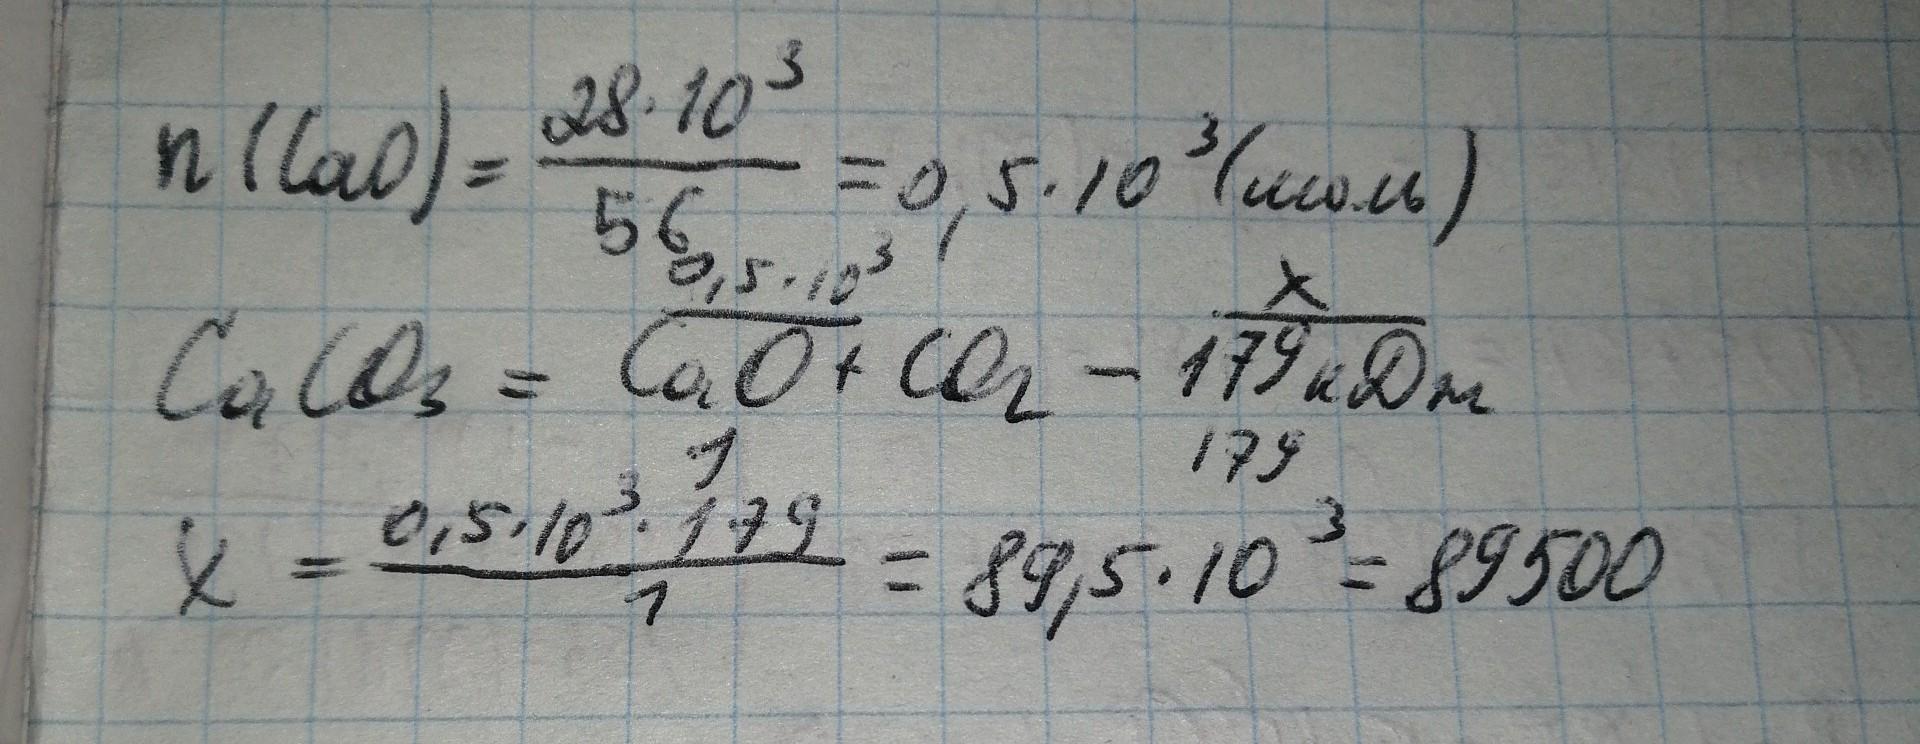 n(CaO) = 28·10³ / 56 = 0,5·10³ (моль)
0,5·10³ x
CaCO₃ = CaO + CO₂ − 179 кДж
1 179
x = 0,5·10³·179 / 1 = 89,5·10³ = 89500